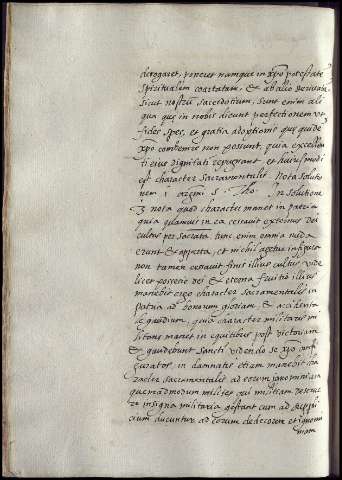 derogaret, poneret namque in xp̃o potestatẽ
spiritualem coartatam, & ab alio deriuatã
sicut nostrũ sacerdotium, sunt enim ali
qua que in nobis dicunt perfectionem vt
fides spes, et gratia adoptionis que quidẽ
xp̃o conuenire non possunt, quia excellen
ti eius dignitati repugnant et huiusmodi
est character sacramentalis. Nota soluto
nem 1 argmi S. Tho. In solutione
3 nota quod character manet in patria
quia quamuis in ea cessauit exterius dei
cultus per sacramta, tunc enim omnia nuda
erunt & aperta, et nichil agetur in figura
non tamen cessauit finis illius cultus vide
licet possessio dei & eterna fruitio illius
manebit ergo character sacramentalis in
patria ad bonorum gloriam, & accidenta
le gaudium, quia character militaris mi
litans manet in equitibus post victoriam
& gaudebunt sancti videndo se xp̃o
figuratos, in damnatis etiam manebit cha
racter sacramentalis ad eorum ignominiam
quemadmodum milites qui militiam deserue
re insignia militaria gestant cum ad suppli
cium ducuntur ad eorum dedecorem et ignomi
niam